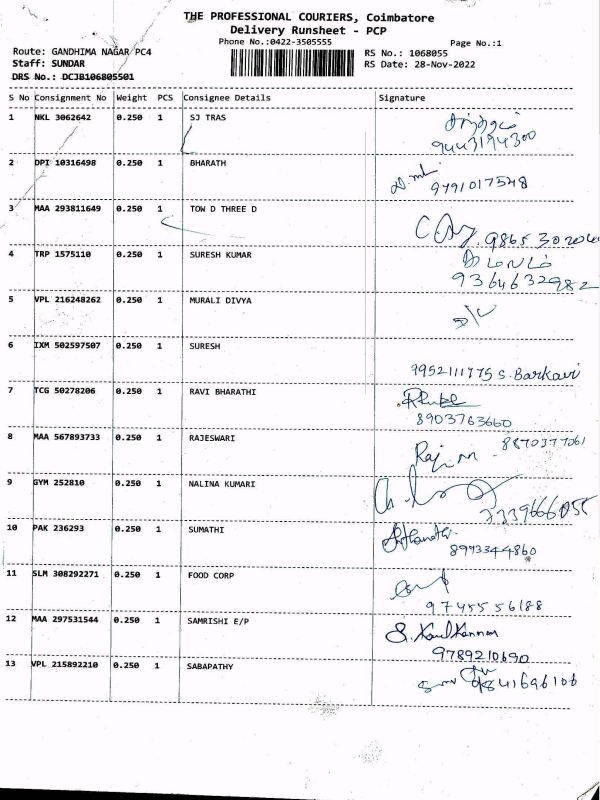 THE PROFESSIONAL COURIERS, Coimbatore
Delivery Runsheet - PCP
Phone No.:0422-3505555
Page No.:1
Route: GANDHIMA NAGAR PC4
RS No.: 1068055
Staff: SUNDAR
RS Date: 28-Nov-2022
DRS No.: DCJB106805501
S No Consignment No Weight PCS Consignee Details Signature
1 NKL 3062642 0.250 1 SJ TRAS
9443194300
2 DPI 10316498 0.250 1 BHARATH
9791017548
3 MAA 293811649 0.250 1 TOW D THREE D
4 TRP 1575110 0.250 1 SURESH KUMAR
9364632982
5 VPL 216248262 0.250 1 MURALI DIVYA
6 IXM 502597507 0.250 1 SURESH
9952111775 S. Barkavi
7 TCG 50278206 0.250 1 RAVI BHARATHI
8903763660
8 MAA 567893733 0.250 1 RAJESWARI
8870377061
9 GYM 252810 0.250 1 NALINA KUMARI
10 PAK 236293 0.250 1 SUMATHI
8993344860
11 SLM 308292271 0.250 1 FOOD CORP
9745556188
12 MAA 297531544 0.250 1 SAMRISHI E/P
9789210690
13 VPL 215892210 0.250 1 SABAPATHY